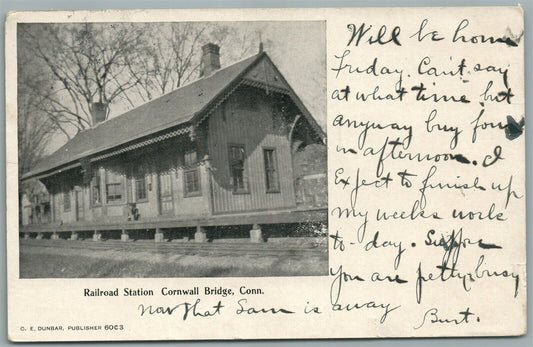 Will be home
Friday. Can't say
at what time but
anyway buy four
in afternoon. I
Expect to finish up
my weeks work
to-day. Suppose
You are pretty busy
now that Sam is away
Burt.
Railroad Station Cornwall Bridge, Conn.
C. E. DUNBAR, PUBLISHER 60C3